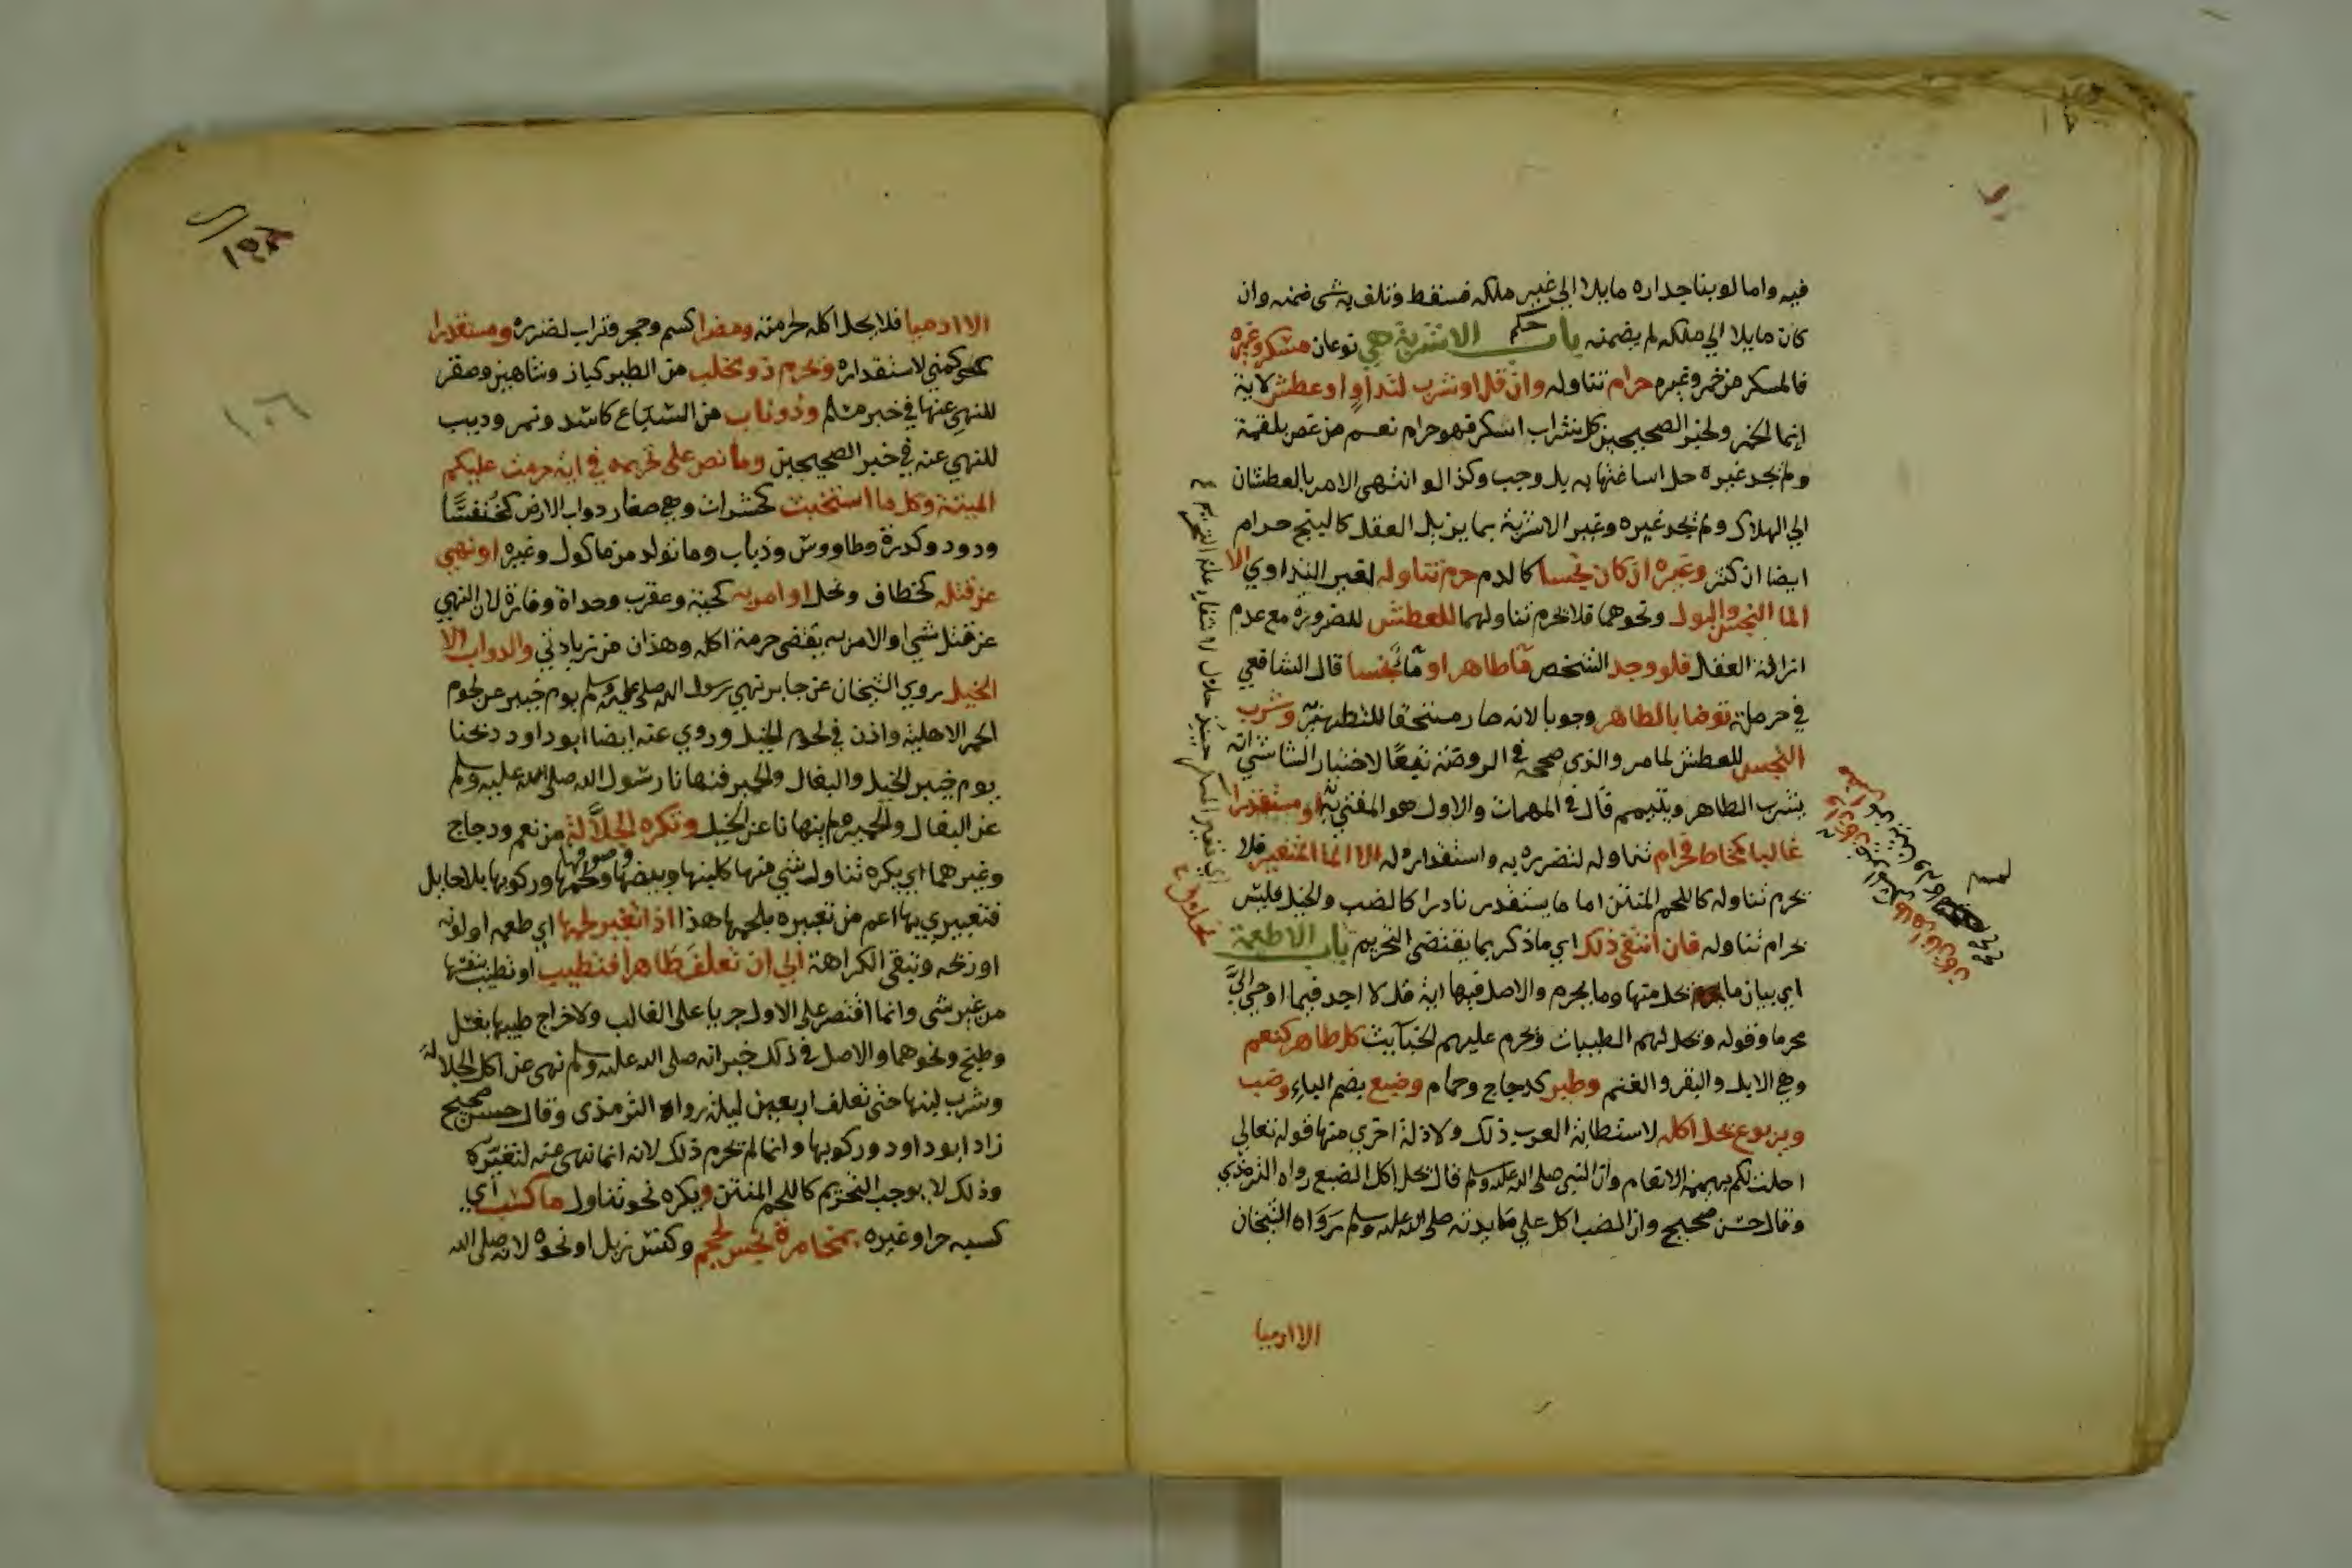 فيه واما لو بنا جداره مايلا الي غير ملكه فسقط وتلف به شى ضمنه وان
كان مايلا الي ملكه لم يضمنه باب حكم الاشربة هي نوعان مسكر وغيره
فالمسكر من خمر وغيره حرام تناوله وان قل او شرب لتداو او عطش لاية
انما الخمر ولخبر الصحيحين كل شراب اسكر فهو حرام نعم من غص بلقمة
ولم يجد غيره حل اساغتها به بل وجب وكذا لو انتهى الامر بالعطشان
الي الهلاك ولم يجد غيره وغير الاشربة بما يزيل العقل كالبنج حرام
ايضا ان كثر وغيره ان كان نجسا كالدم حرم تناوله لغير التداوي الا
الما النجس والبول ونحوهما فلا يحرم تناولهما للعطش للضرورة مع عدم
ازالة العقل فلو وجد الشخص ما طاهرا او ما نجسا قال الشافعي
في حرملة توضا بالطاهر وجوبا لانه صار مستحقا للتطهير به وشرب
النجس للعطش لما مر والذى صححه في الروضة تبعًا لاختيار الشاشي انه
يشرب الطاهر ويتيمم قال في المهمات والاول هو المفتى به او مستقذرا
غالبا كمخاط فحرام تناوله لتضرره به واستقذاره له الا الما المتغير فلا
يحرم تناوله كاللحم المنتن اما ما يستقذر نادرا كالضب والخيل فليس
بحرام تناوله فان انتفى ذلك اي ماذكر بما يقتضى التحريم باب الاطعمة
اي بيان ما يحل منها وما يحرم والاصل فيها اية قل لا اجد فيما اوحي اليَّ
محرما وقوله ويحل لهم الطيبات ويحرم عليهم الخبآيث كل طاهر كنعم
وهي الابل والبقر والغنم وطير كدجاج وحمام وضبع بضم الباء وضب
ويربوع يحل اكله لاستطابة العرب ذلك ولادلة اخري منها قوله تعالي
احلت لكم بهيمة الانعام وان النبي صلى الله عليه وسلم قال يحل اكل الضبع رواه الترمذي
وقال حسن صحيح وان الضب اكل علي مايدته صلى الله عليه وسلم رواه الشيخان
الا ادميا
الا ادميا فلا يحل اكله لحرمته ومضرا كسم وحجر وتراب لضرره ومستقذرا
كمني لاستقذاره ويحرم ذو مخلب من الطير كباز وشاهين وصقر
للنهي عنها في خبر مسلم وذو ناب من السباع كاسد ونمر ودب
للنهي عنه في خبر الصحيحين وما نص على تحريمه في اية حرمت عليكم
الميتة وكل ما استخبث كحشرات وهي صغار دواب الارض كخنفسا
ودود وكدرة وطاووس وذباب وما تولد من ماكول وغيره او نهي
عن قتله كخطاف ونحل او امر به كحية وعقرب وحداة وفارة لان النهي
عن قتل شي او الامر به يقتضى حرمة اكله وهذان من زيادتي والدواب الا
الخيل روي الشيخان عن جابر نهي رسول الله صلى عليه وسلم يوم خيبر عن لحوم
الحمر الاهلية واذن في لحوم الخيل وروي عنه ايضا ابو داود ذبحنا
يوم خيبر الخيل والبغال والحمير فنهانا رسول الله صلى الله عليه وسلم
عن البغال والحمير ولم ينهانا عن الخيل وتكره الجلاَّلة من نعم ودجاج
وغيرهما اي يكره تناول شي منها كلبنها وبيضها ولحمها وصوفها وركوبها بلا حايل
فتعبيري بها اعم من تعبيره بلحمها هذا اذا تغير لحمها اي طعمه او لونه
او ريحه وتبقى الكراهة الي ان تعلف طاهرا فتطيب او تطيب بنفسها
من غير شى وانما اقتصر على الاول جريا على الغالب ولاخراج طيبها بغسل
وطبخ ونحوهما والاصل في ذلك خبر انه صلى الله عليه وسلم نهى عن اكل الجلالة
وشرب لبنها حتى تعلف اربعين ليلة رواه الترمذى وقال حسن صحيح
زاد ابو داود وركوبها وانما لم يحرم ذلك لانه انما نهى عنه لتغيره
وذلك لا يوجب التحريم كاللحم المنتن ويكره نحو تناول ما كسب اي
كسبه حر او غيره بمخامرة نجس كحجم وكنس زبل او نحوه لانه صلى الله